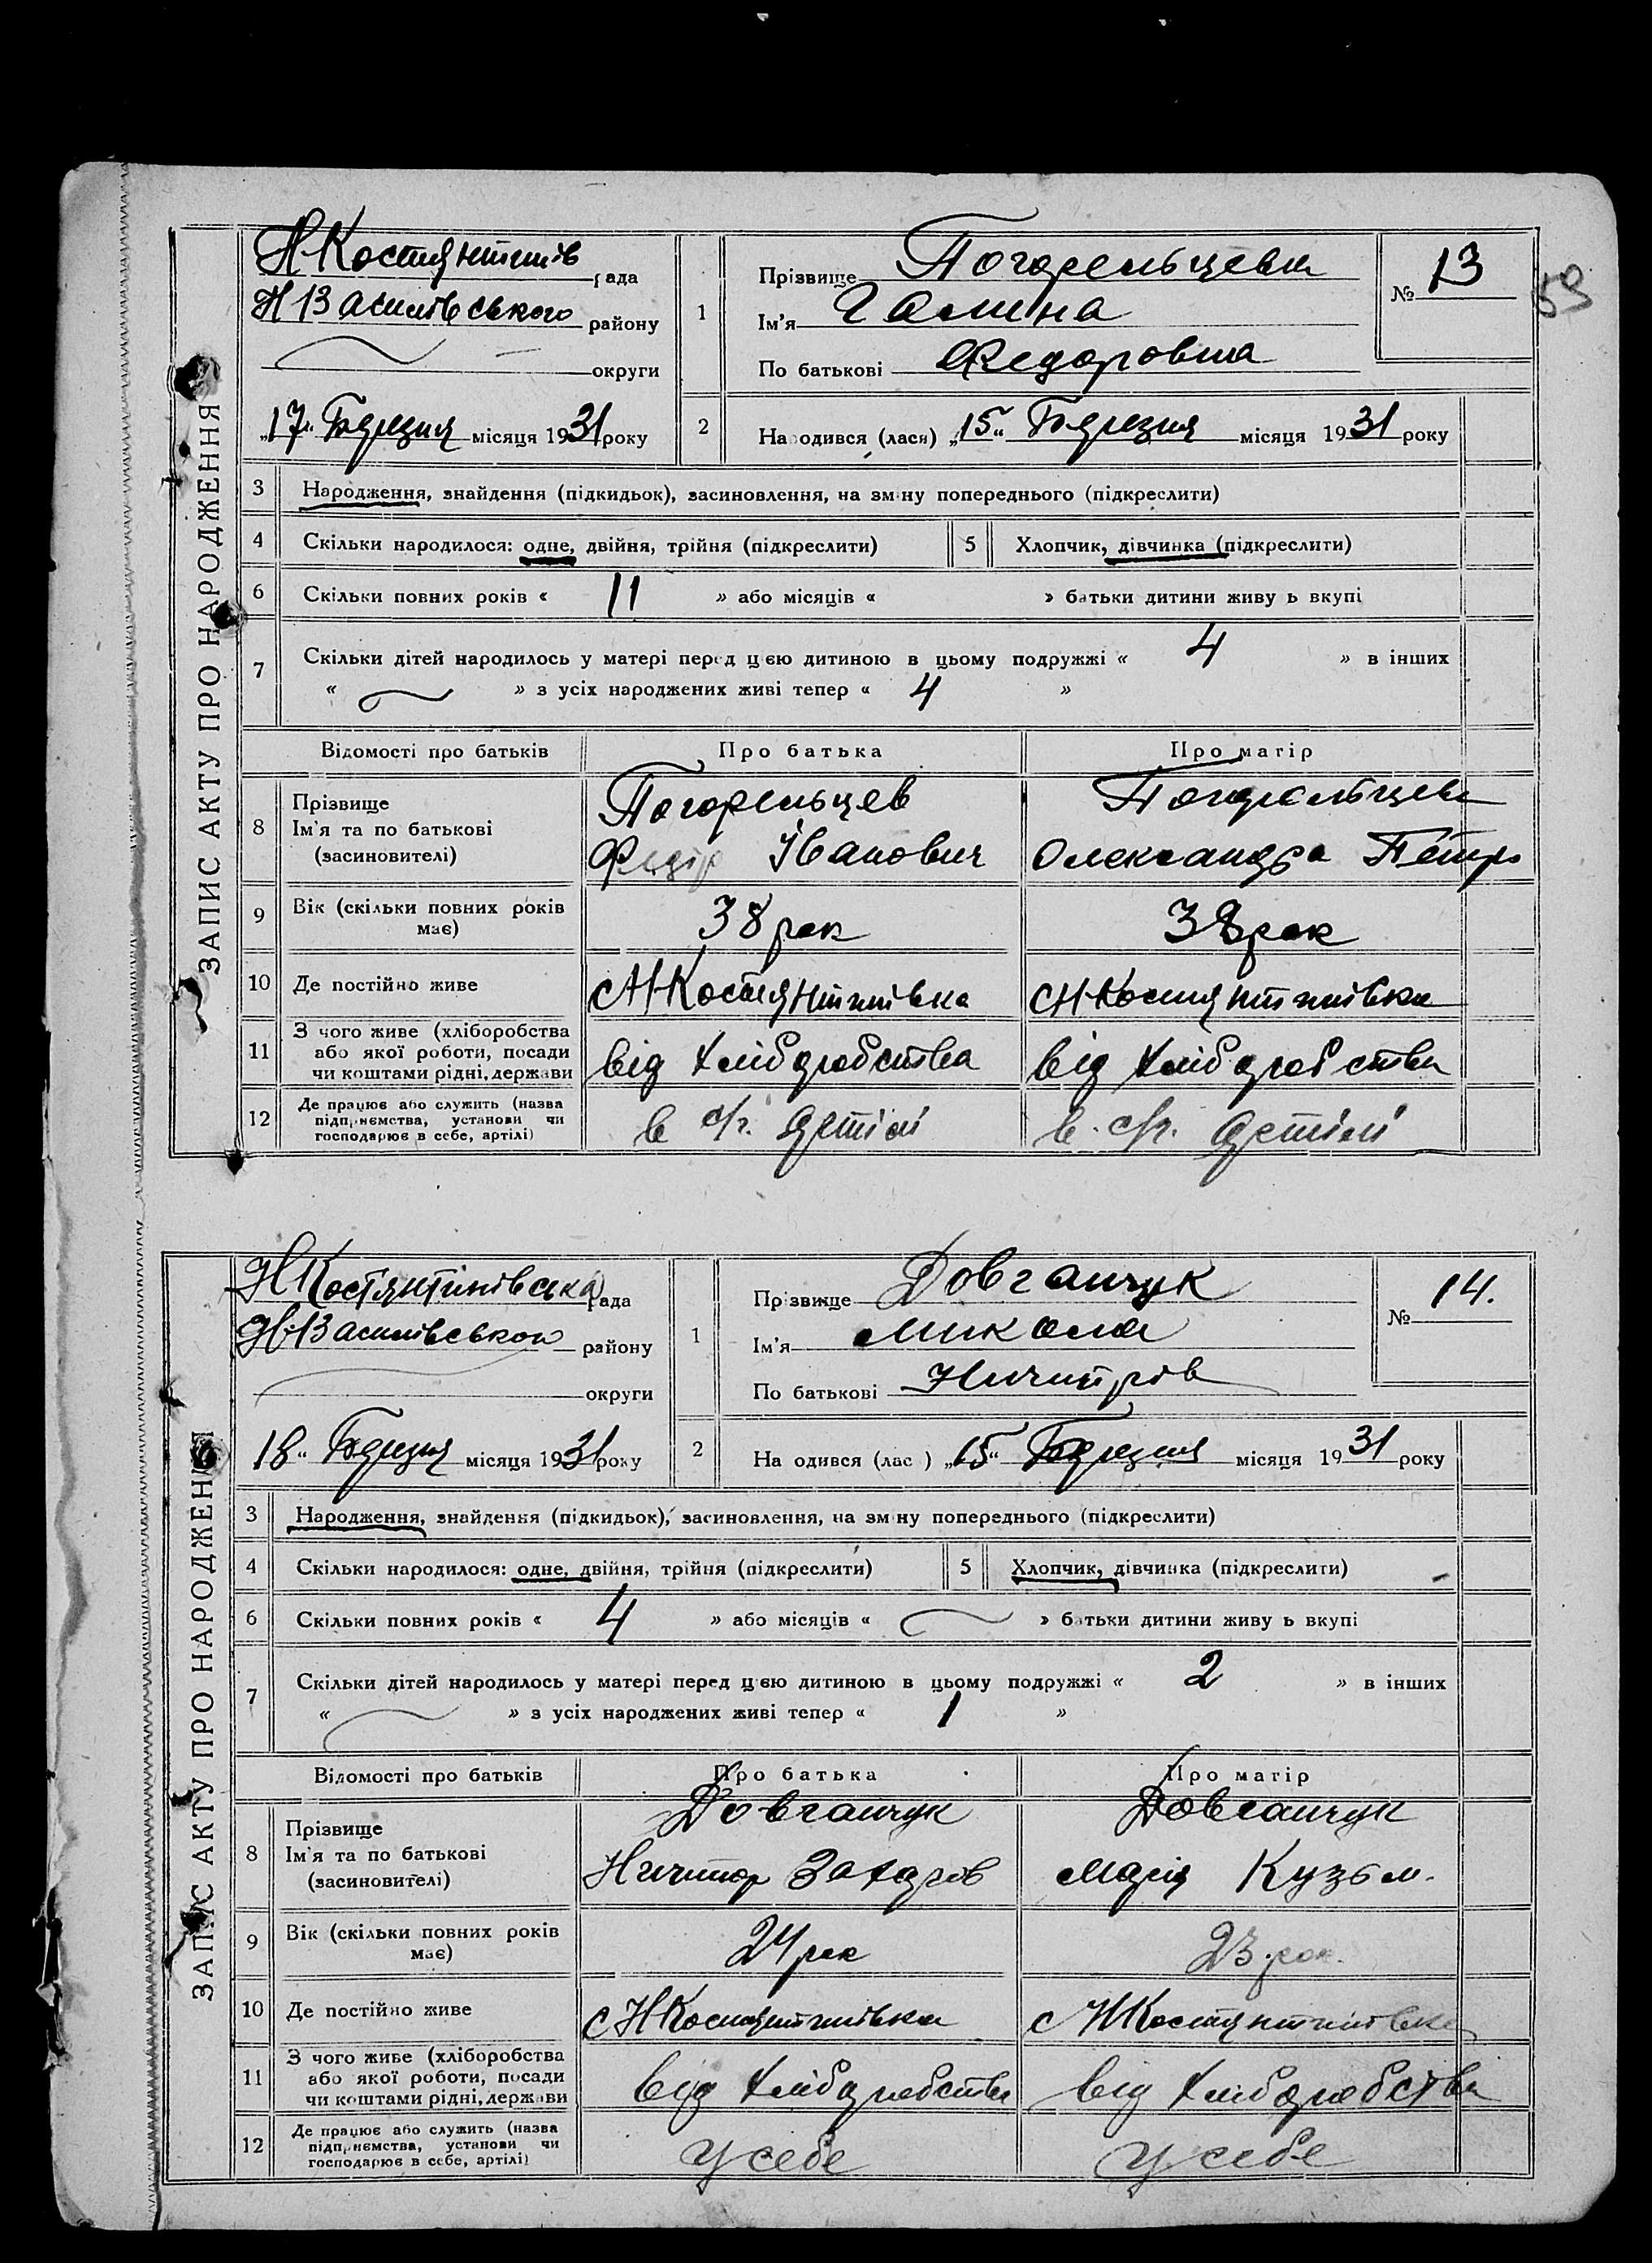 ЗАПИС АКТУ ПРО НАРОДЖЕННЯ
Н-Костянтинів рада
Н Василівського району
округи
„17“ Березня місяця 1931 року
1
Прізвище Погорельцева
Ім'я Галина
По батькові Федоровна
№ 13
59
2
Народився (лася) „15“ Березня місяця 1931 року
3 Народження, знайдення (підкидьок), засиновлення, на зміну попереднього (підкреслити)
4 Скільки народилося: одне, двійня, трійня (підкреслити)
5 Хлопчик, дівчинка (підкреслити)
6 Скільки повних років « 11 » або місяців « » батьки дитини живуть вкупі
7 Скільки дітей народилось у матері перед цією дитиною в цьому подружжі « 4 » в інших
« » з усіх народжених живі тепер « 4 »
Відомості про батьків Про батька Про матір
8 Прізвище
Ім'я та по батькові
(засиновителі)
Погорельцев
Федір Іванович
Погорельцева
Олександра Петро
9 Вік (скільки повних років має)
38 рок
38 рок
10 Де постійно живе
с Н-Костянтинівка
с Н-Костянтинівка
11 З чого живе (хліборобства
або якої роботи, посади
чи коштами рідні, держави
від хліборобства
від хліборобства
12 Де працює або служить (назва
підприємства, установи чи
господарює в себе, артілі)
в с/г. артілі
в с/г. артілі
ЗАПИС АКТУ ПРО НАРОДЖЕННЯ
Н Костянтинівська рада
Н-Василівськог району
округи
18“ Березня місяця 1931 року
1
Прізвище Довганчук
Ім'я Микола
По батькові Ничипрів
№ 14.
2
Народився (лас ) „15“ Березня місяця 1931 року
3 Народження, знайдення (підкидьок), засиновлення, на зміну попереднього (підкреслити)
4 Скільки народилося: одне, двійня, трійня (підкреслити)
5 Хлопчик, дівчинка (підкреслити)
6 Скільки повних років « 4 » або місяців « » батьки дитини живуть вкупі
7 Скільки дітей народилось у матері перед цією дитиною в цьому подружжі « 2 » в інших
« » з усіх народжених живі тепер « 1 »
Відомості про батьків Про батька Про матір
8 Прізвище
Ім'я та по батькові
(засиновителі)
Довганчук
Ничипор Захарів
Довганчук
Марія Кузьм.
9 Вік (скільки повних років має)
24 рок
23 рок.
10 Де постійно живе
с Н Костянтинівка
с Н Костянтинівка
11 З чого живе (хліборобства
або якої роботи, посади
чи коштами рідні, держави
від хліборобства
від хліборобства
12 Де працює або служить (назва
підприємства, установи чи
господарює в себе, артілі)
у себе
у себе